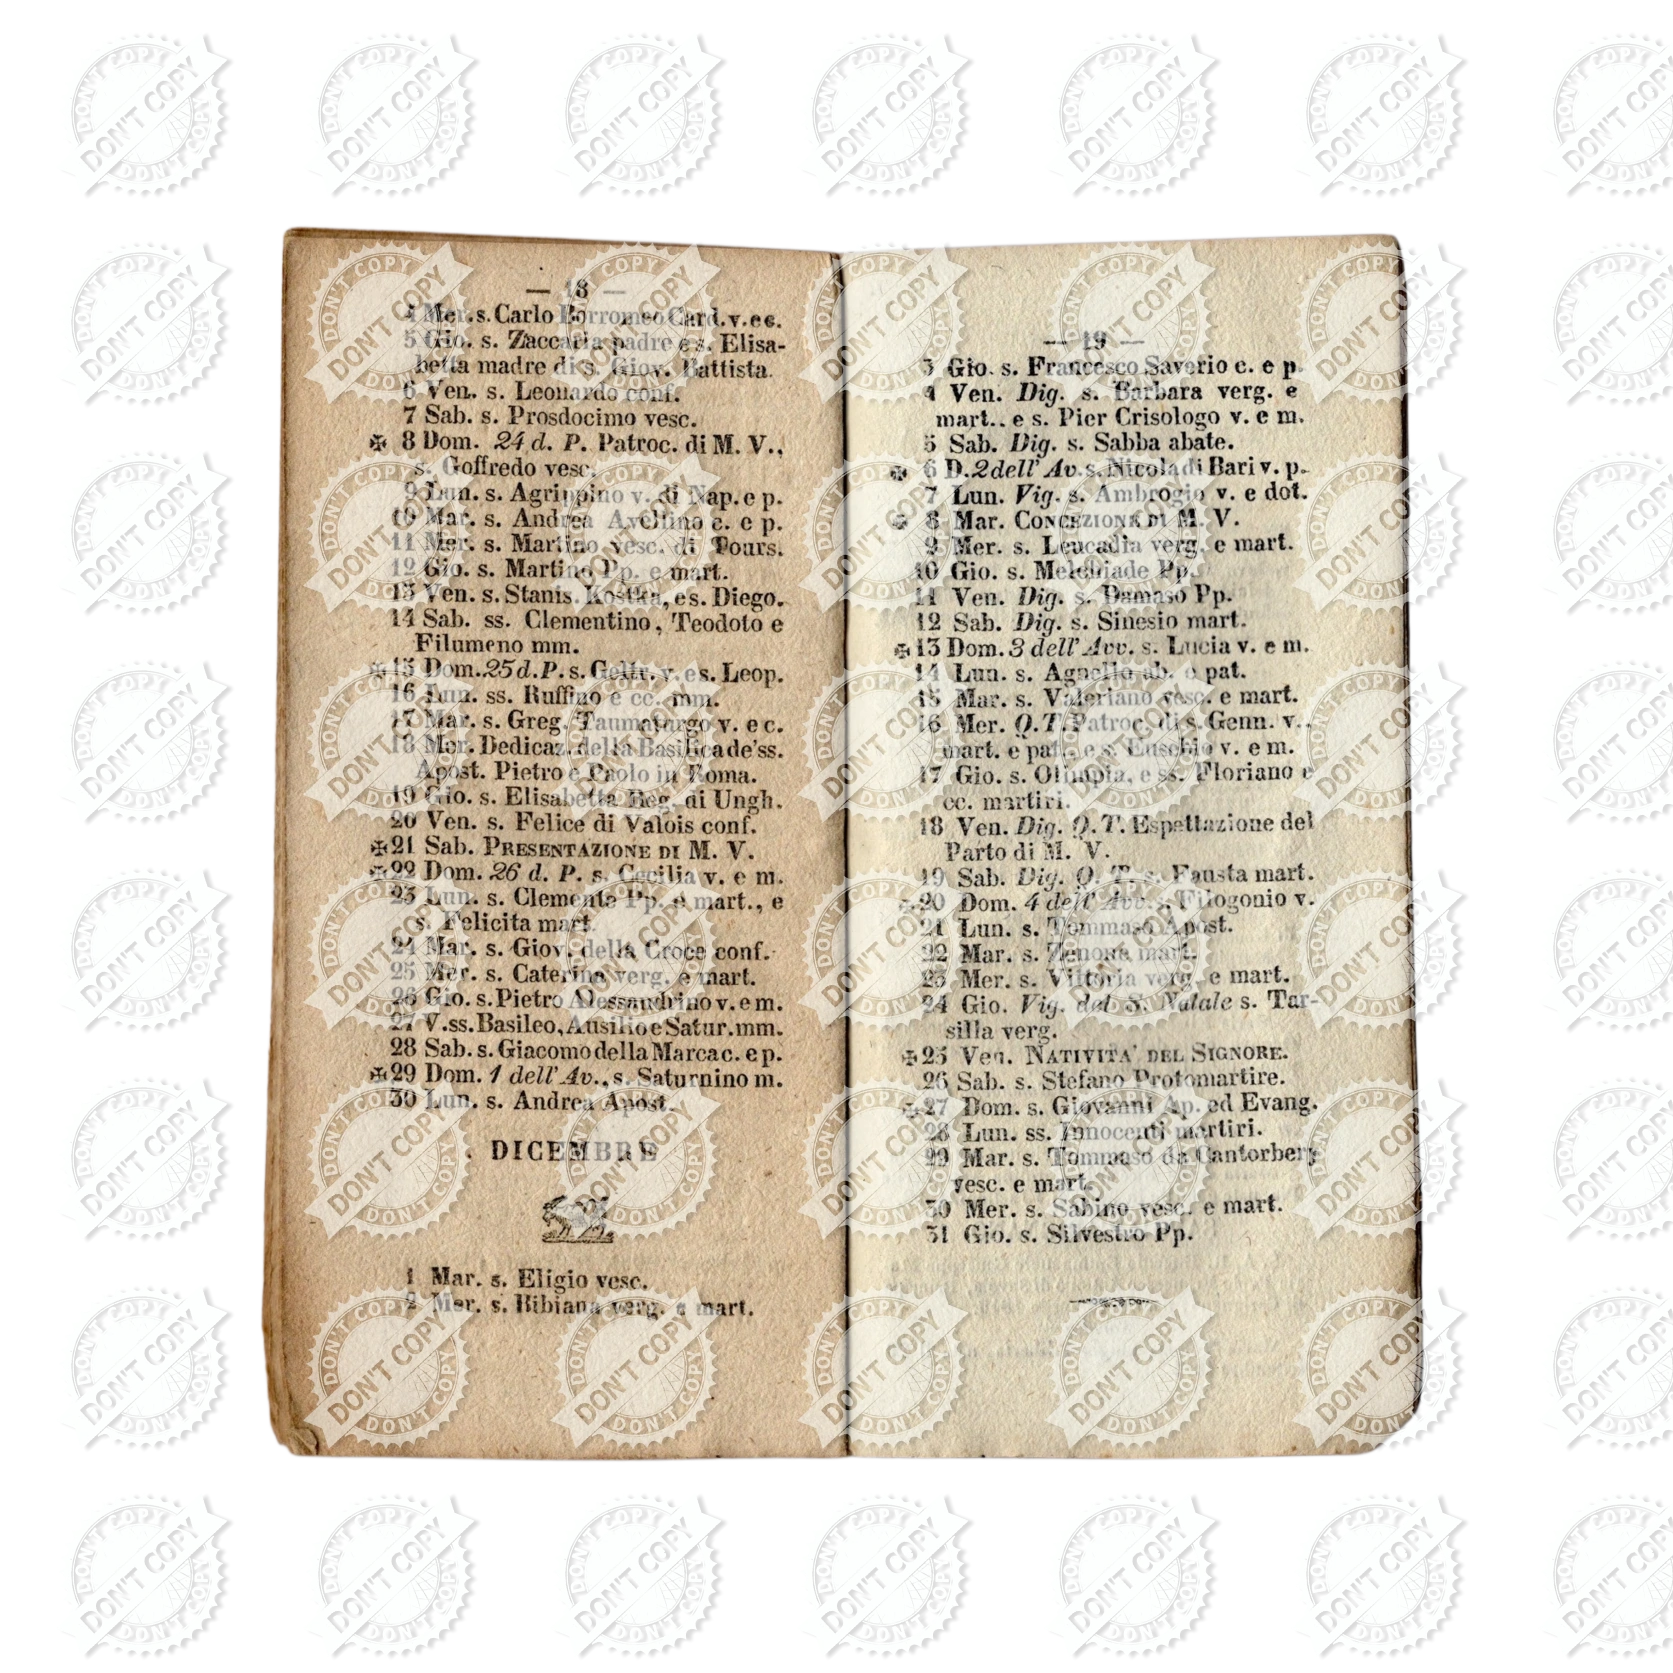 — 18 —
4 Mer. s. Carlo Borromeo Card. v. e c.
5 Gio. s. Zaccaria padre e s. Elisa-
betta madre di s. Giov. Battista.
6 Ven. s. Leonardo conf.
7 Sab. s. Prosdocimo vesc.
✠ 8 Dom. 24 d. P. Patroc. di M. V.,
s. Goffredo vesc.
9 Lun. s. Agrippino v. di Nap. e p.
10 Mar. s. Andrea Avellino c. e p.
11 Mer. s. Martino vesc. di Tours.
12 Gio. s. Martino Pp. e mart.
13 Ven. s. Stanis. Kostka, e s. Diego.
14 Sab. ss. Clementino, Teodoto e
Filumeno mm.
✠ 15 Dom. 25 d. P. s. Geltr. v. e s. Leop.
16 Lun. ss. Ruffino e cc. mm.
17 Mar. s. Greg. Taumaturgo v. e c.
18 Mer. Dedicaz. della Basilica de' ss.
Apost. Pietro e Paolo in Roma.
19 Gio. s. Elisabetta Reg. di Ungh.
20 Ven. s. Felice di Valois conf.
✠ 21 Sab. PRESENTAZIONE DI M. V.
✠ 22 Dom. 26 d. P. s. Cecilia v. e m.
23 Lun. s. Clemente Pp. e mart., e
s. Felicita mart.
24 Mar. s. Giov. della Croce conf.
25 Mer. s. Caterina verg. e mart.
26 Gio. s. Pietro Alessandrino v. e m.
27 V. ss. Basileo, Ausilio e Satur. mm.
28 Sab. s. Giacomo della Marca c. e p.
✠ 29 Dom. 1 dell' Av., s. Saturnino m.
30 Lun. s. Andrea Apost.
DICEMBRE
1 Mar. s. Eligio vesc.
2 Mer. s. Bibiana verg. e mart.
— 19 —
3 Gio. s. Francesco Saverio c. e p.
4 Ven. Dig. s. Barbara verg. e
mart.. e s. Pier Crisologo v. e m.
5 Sab. Dig. s. Sabba abate.
✠ 6 D. 2 dell' Av. s. Nicola di Bari v. p.
7 Lun. Vig. s. Ambrogio v. e dot.
✠ 8 Mar. CONCEZIONE DI M. V.
9 Mer. s. Leucadia verg. e mart.
10 Gio. s. Melchiade Pp.
11 Ven. Dig. s. Damaso Pp.
12 Sab. Dig. s. Sinesio mart.
✠ 13 Dom. 3 dell' Avv. s. Lucia v. e m.
14 Lun. s. Agnello ab. e pat.
15 Mar. s. Valeriano vesc. e mart.
16 Mer. Q. T. Patroc. di s. Genn. v.,
mart. e pat., e s. Eusebio v. e m.
17 Gio. s. Olimpia, e ss. Floriano e
cc. martiri.
18 Ven. Dig. Q. T. Espettazione del
Parto di M. V.
19 Sab. Dig. Q. T. s. Fausta mart.
✠ 20 Dom. 4 dell' Avv. s. Filogonio v.
21 Lun. s. Tommaso Apost.
22 Mar. s. Zenone mart.
23 Mer. s. Vittoria verg. e mart.
24 Gio. Vig. del S. Natale s. Tar-
silla verg.
✠ 25 Ven. NATIVITA' DEL SIGNORE.
26 Sab. s. Stefano Protomartire.
✠ 27 Dom. s. Giovanni Ap. ed Evang.
28 Lun. ss. Innocenti martiri.
29 Mar. s. Tommaso da Cantorbery
vesc. e mart.
30 Mer. s. Sabino vesc. e mart.
31 Gio. s. Silvestro Pp.